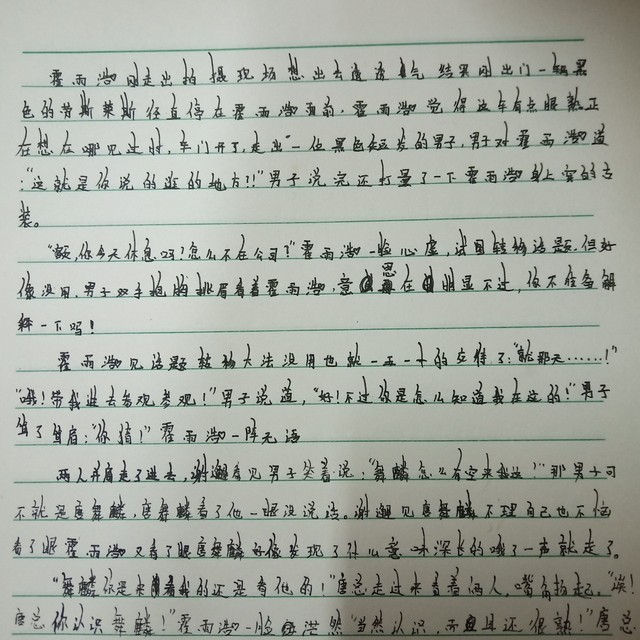 霍雨浩刚走出拍摄现场想出去透透气 结果刚出门一辆黑
色的劳斯莱斯径直停在霍雨浩面前，霍雨浩觉得这车有点眼熟正
在想在哪见过时，车门开了，走出一位黑色短发的男子，男子对霍雨浩道
："这就是你说的逛的地方?!"男子说完还打量了一下霍雨浩身上穿的古
装。
"额，你今天休息吗？怎么不在公司？"霍雨浩一脸心虚，试图转移话题，但好
像没用，男子双手抱胸挑眉看着霍雨浩，意思在明显不过，你不准备解
释一下吗！
霍雨浩见话题转移大法没用也就一五一十的交待了："就那天……！"
"哦！带我进去参观参观！"男子说道，"好！不过你是怎么知道我在这的！"男子
耸了耸肩："你猜！"霍雨浩一阵无语
两人并肩走了进去，谢邂看见男子笑着说："舞麟怎么有空来我这！"那男子可
不就是唐舞麟，唐舞麟看了他一眼没说话。谢邂见唐舞麟不理自己也不恼
看了眼霍雨浩又看了眼唐舞麟好像发现了什么意味深长的哦了一声就走了。
"舞麟你是来看我的还是看他的！"唐总走过来看着俩人，嘴角扬起，"诶！
唐总你认识舞麟！"霍雨浩一脸茫然"当然认识，而且还很熟！"唐总